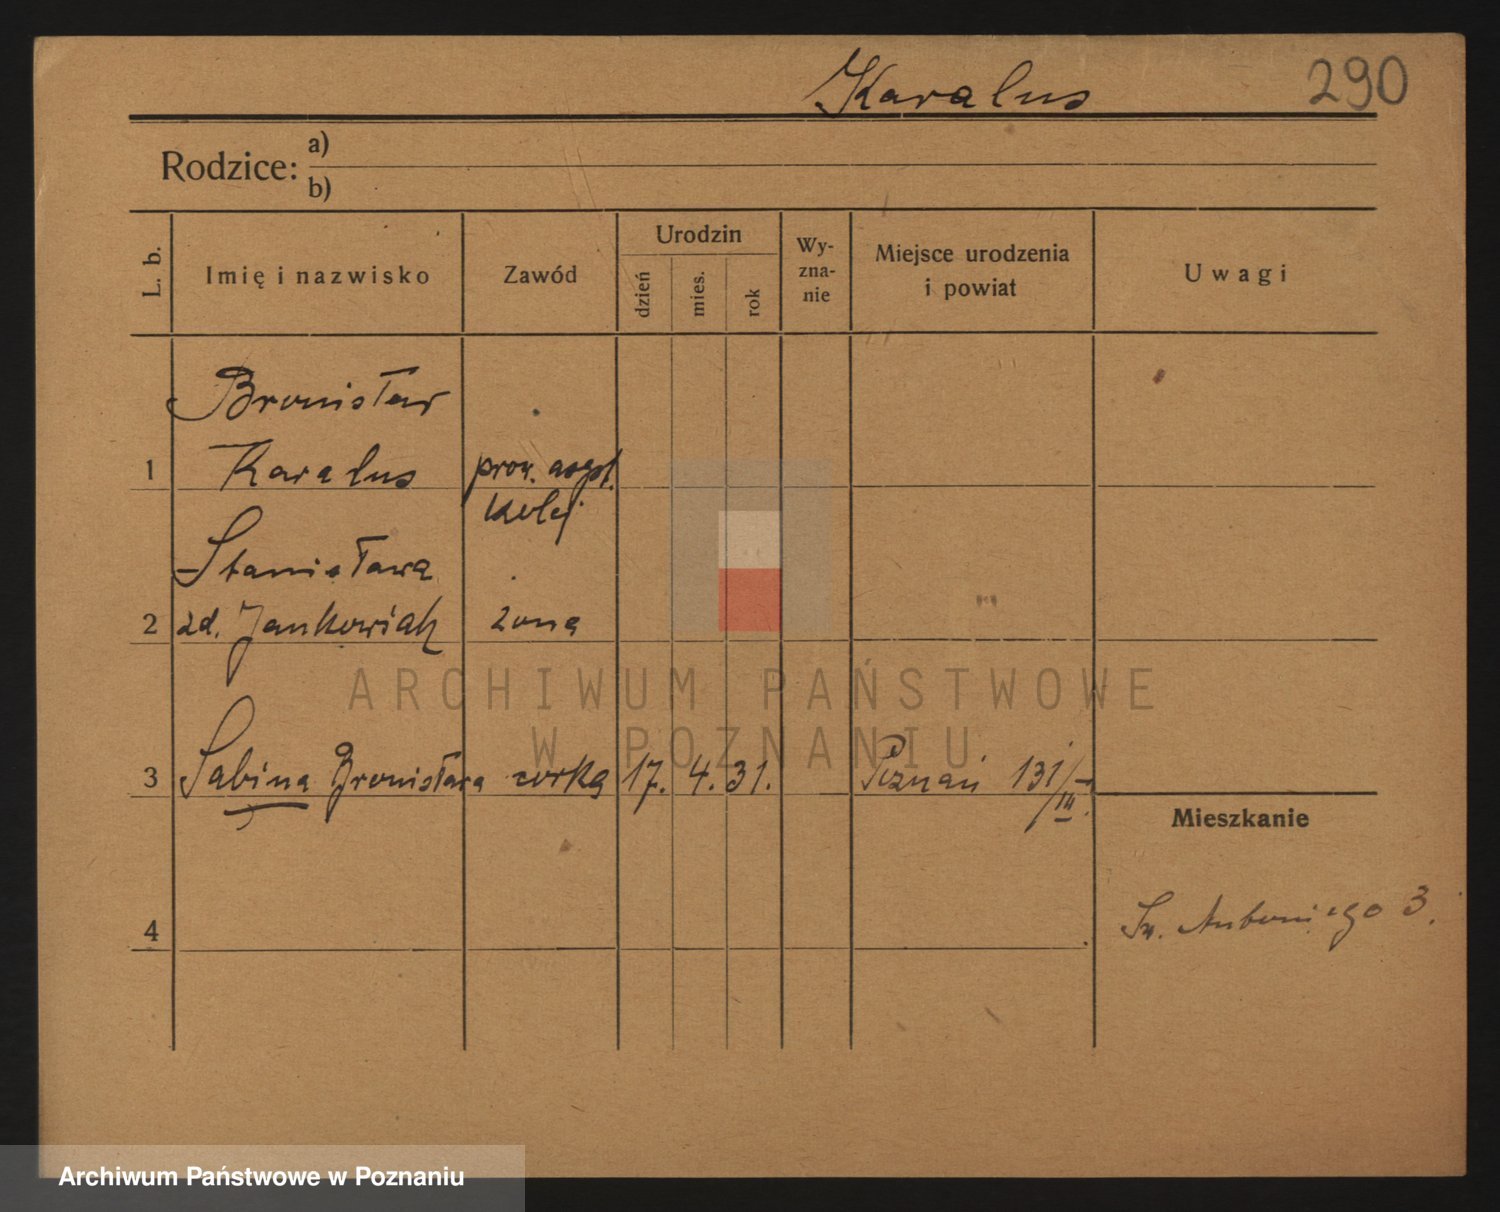 Karalus 290
Rodzice: a)
b)
L. b. Imię i nazwisko Zawód Urodzin dzień mies. rok Wy-zna-nie Miejsce urodzenia i powiat Uwagi
Bronisław
1 Karalus prow. asyst.
kolej
Stanisława
2 zd. Jankowiak żona
ARCHIWUM PAŃSTWOWE
W POZNANIU
3 Sabina Bronisława córka 17. 4. 31. Poznań 131/III.
Mieszkanie
4 Św. Antoniego 3.
Archiwum Państwowe w Poznaniu